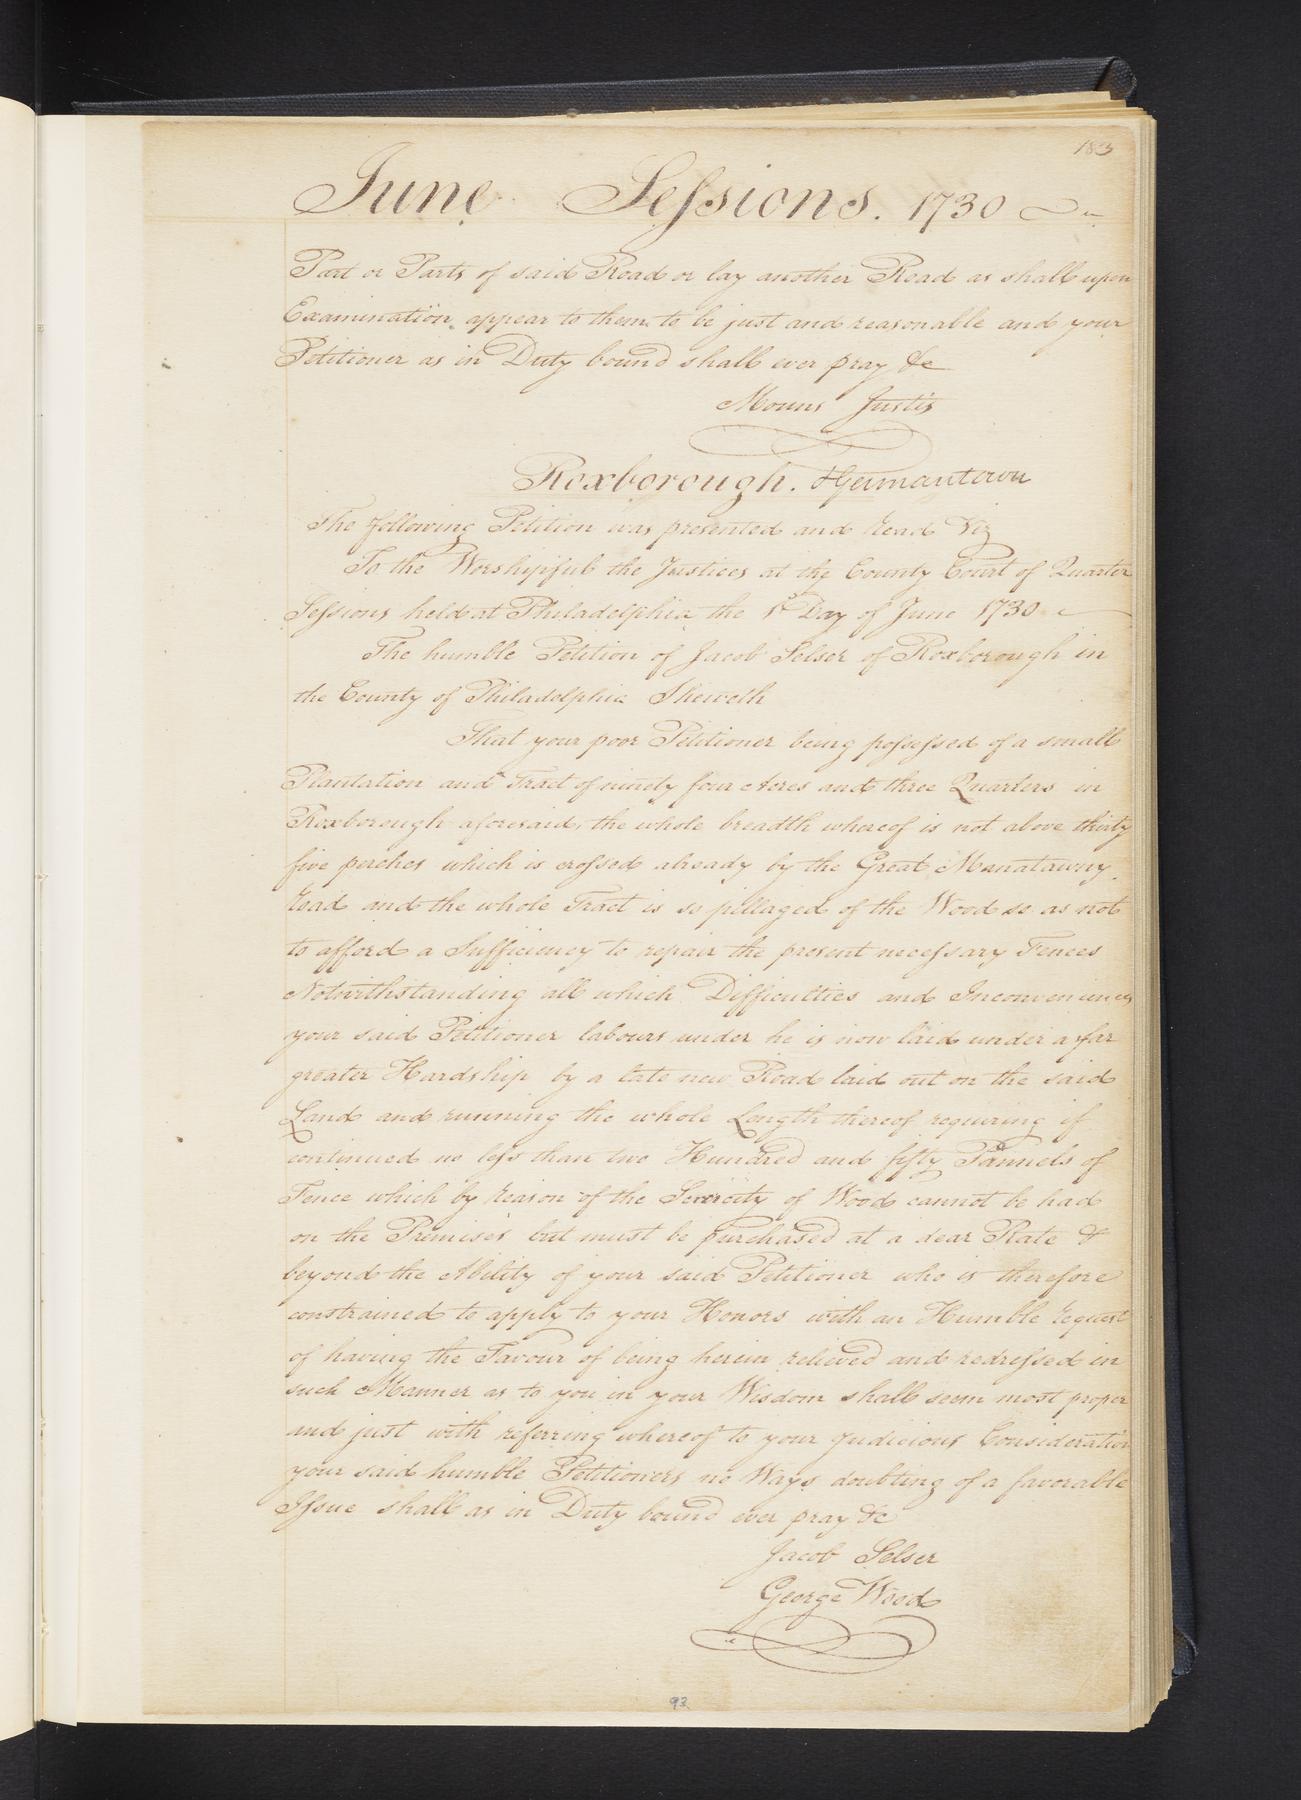 183
June Sessions. 1730
Part or Parts of said Road or lay another Road as shall upon
Examination appear to them to be just and reasonable and your
Petitioner as in Duty bound shall ever pray &c
Mouns Justis
Roxborough. Germantown
The following Petition was presented and read Viz
To the Worshipfull the Justices at the County Court of Quarter
Sessions held at Philadelphia the 1st Day of June 1730
The humble Petition of Jacob Selser of Roxborough in
the County of Philadelphia Sheweth
That your poor Petitioner being possessed of a small
Plantation and Tract of ninety four Acres and three Quarters in
Roxborough aforesaid, the whole breadth whereof is not above thirty
five perches which is crossed already by the Great Manatawny
road and the whole Tract is so pillaged of the Wood so as not
to afford a Sufficiency to repair the present necessary Fences
Notwithstanding all which Difficulties and Inconveniences
your said Petitioner labours under he is now laid under a far
greater Hardship by a late new Road laid out on the said
Land and running the whole Length thereof requiring if
continued no less than two Hundred and fifty Pannels of
Fence which by reason of the of Wood cannot be had
on the Premises but must be purchased at a dear Rate &
beyond the Ability of your said Petitioner who is therefore
constrained to apply to your Honors with an Humble request
of having the Favour of being herein relieved and redressed in
such Manner as to you in your Wisdom shall seem most proper
and just with referring whereof to your Judicious Consideration
your said humble Petitioners no Ways doubting of a favorable
Issue shall as in Duty bound ever pray &c
Jacob Selser
George Wood
93